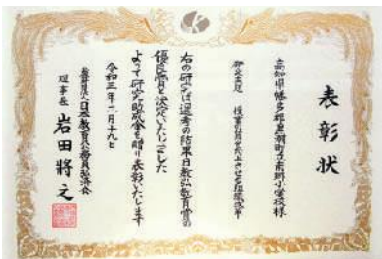 表彰状
高知県幡多郡黒潮町立南郷小学校様
研究主題 授業の質を向上させる組織改革
右の研究は選考の結果日教弘教育賞の
優良賞と決定いたしました
よって研究助成金を贈り表彰いたします
令和三年二月十九日
公益財団法人日本教育公務員弘済会
理事長 岩田將之